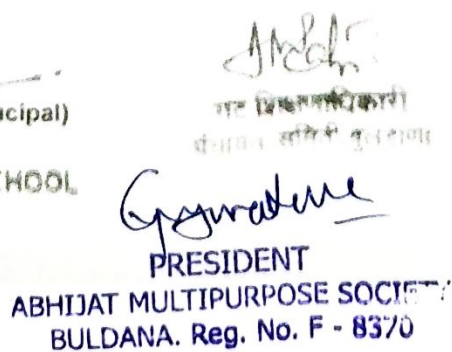 cipal)
गट शिक्षणाधिकारी
पंचायत समिती बुलडाणा
HOOL
PRESIDENT
ABHIJAT MULTIPURPOSE SOCIETY
BULDANA. Reg. No. F - 8370